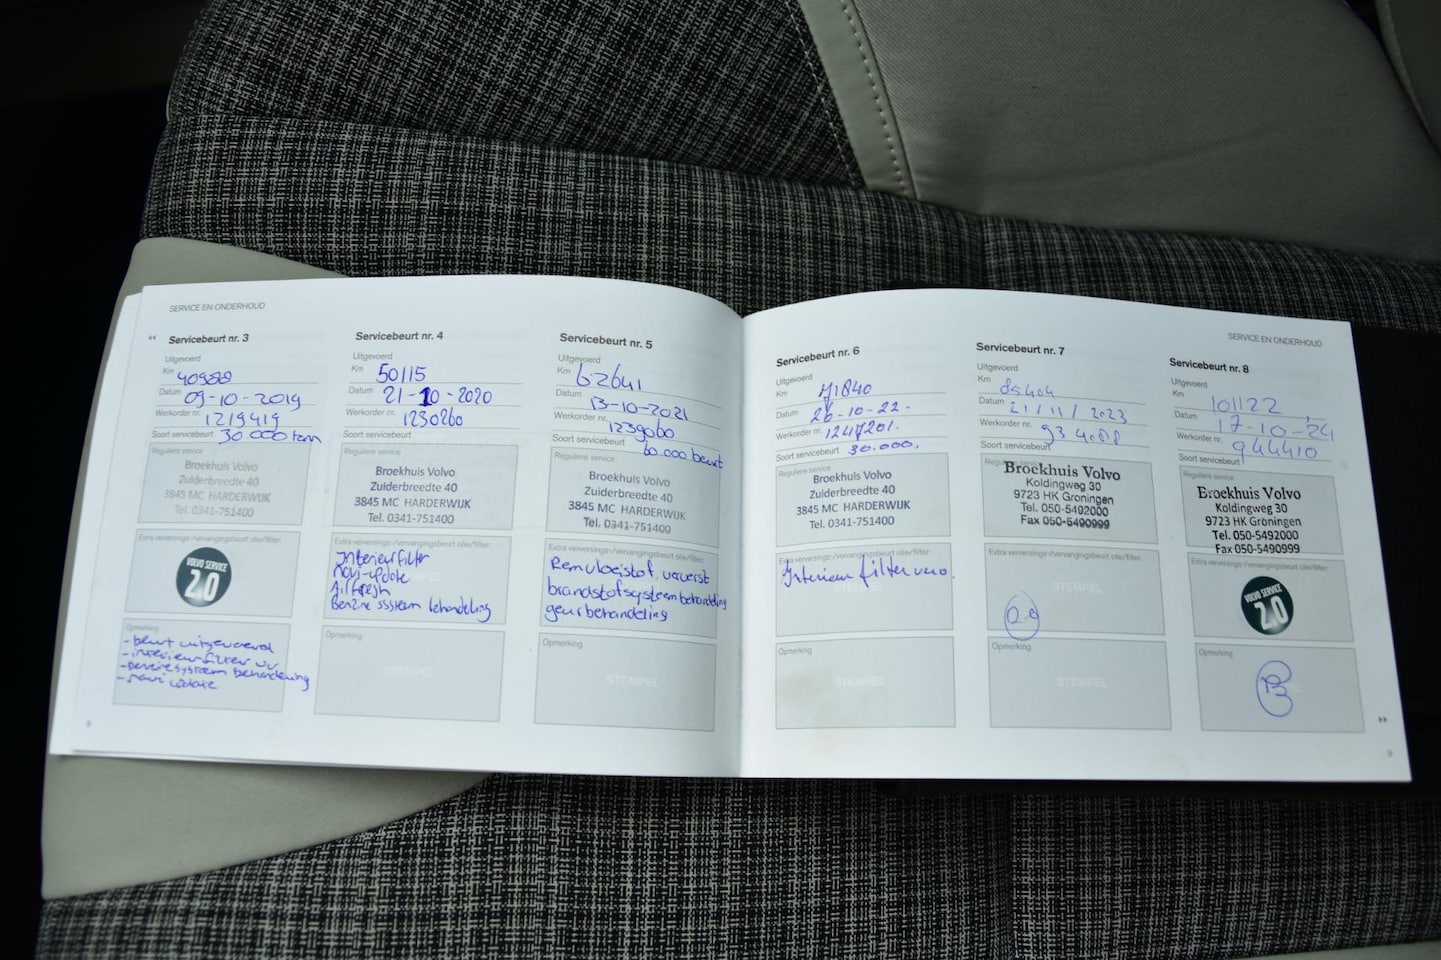 SERVICE EN ONDERHOUD
Servicebeurt nr. 3
Uitgevoerd
Km 40988
Datum 09-10-2019
Werkorder nr. 1219419
Soort servicebeurt 30.000 km
Reguliere service
Broekhuis Volvo
Zuiderbreedte 40
3845 MC HARDERWIJK
Tel. 0341-751400
Extra verversings-/vervangingsbeurt olie/filter:
VOLVO SERVICE
2.0
Opmerking
- beurt uitgevoerd
- interieurfilter vv
- benzinesysteem behandeling
- navi update
8
Servicebeurt nr. 4
Uitgevoerd
Km 50115
Datum 21-10-2020
Werkorder nr. 1230260
Soort servicebeurt
Reguliere service
Broekhuis Volvo
Zuiderbreedte 40
3845 MC HARDERWIJK
Tel. 0341-751400
Extra verversings-/vervangingsbeurt olie/filter:
Interieurfilter
navi-update
Airfresh
Benzine systeem behandeling
Opmerking
STEMPEL
Servicebeurt nr. 5
Uitgevoerd
Km 62641
Datum 13-10-2021
Werkorder nr. 1239060
Soort servicebeurt 60.000 beurt
Reguliere service
Broekhuis Volvo
Zuiderbreedte 40
3845 MC HARDERWIJK
Tel. 0341-751400
Extra verversings-/vervangingsbeurt olie/filter:
Remvloeistof ververst
brandstofsysteembehandeling
geurbehandeling
Opmerking
STEMPEL
SERVICE EN ONDERHOUD
Servicebeurt nr. 6
Uitgevoerd
Km 71840
Datum 26-10-22.
Werkorder nr. 1247201.
Soort servicebeurt 30.000.
Broekhuis Volvo
Zuiderbreedte 40
3845 MC HARDERWIJK
Tel. 0341-751400
Extra verversings-/vervangingsbeurt olie/filter:
Interieur filter verv.
STEMPEL
Opmerking
STEMPEL
Servicebeurt nr. 7
Uitgevoerd
Km 85404
Datum 21/11/2023
Werkorder nr.
Soort servicebeurt
Broekhuis Volvo
Koldingweg 30
9723 HK Groningen
Tel. 050-5492000
Fax 050-5490999
Extra verversings-/vervangingsbeurt olie/filter:
STEMPEL
2.0
Opmerking
STEMPEL
Servicebeurt nr. 8
Uitgevoerd
Km 101122
Datum 17-10-24
Werkorder nr. 944410
Soort servicebeurt
Reguliere service
Broekhuis Volvo
Koldingweg 30
9723 HK Groningen
Tel. 050-5492000
Fax 050-5490999
Extra verversings-/vervangingsbeurt olie/filter:
VOLVO SERVICE
2.0
Opmerking
9